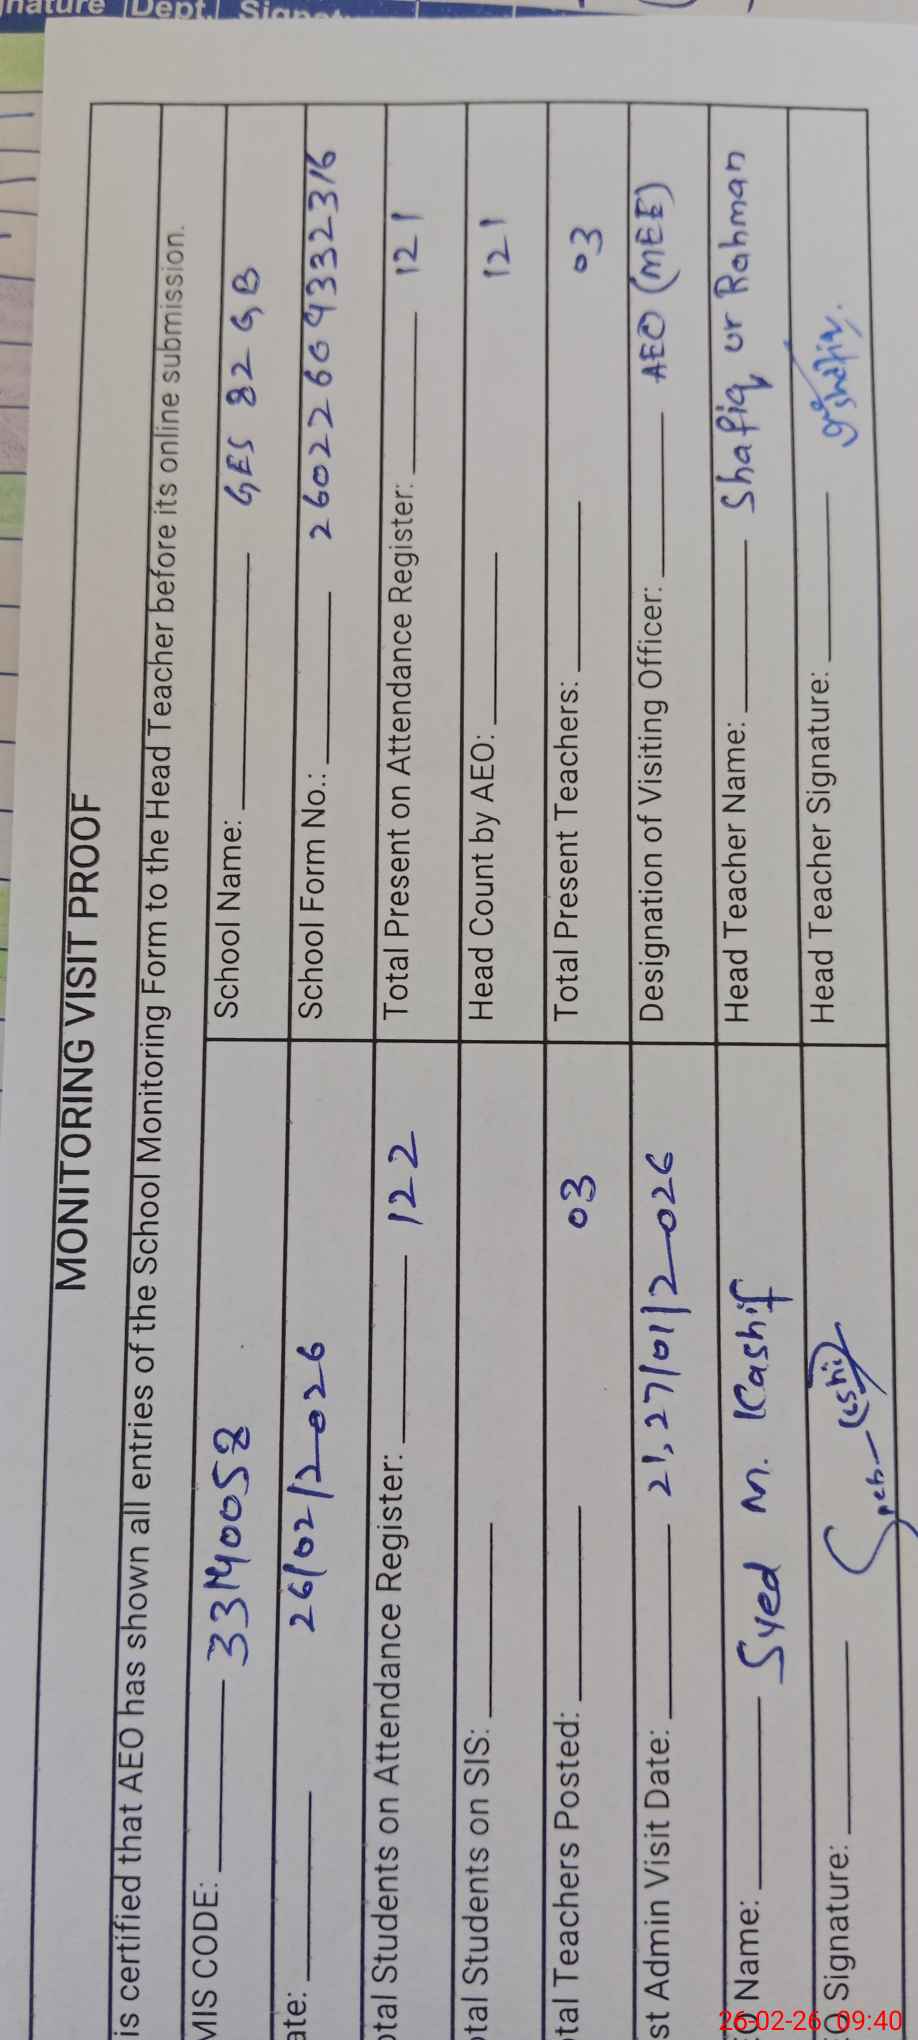 nature Dept. Signat
MONITORING VISIT PROOF
is certified that AEO has shown all entries of the School Monitoring Form to the Head Teacher before its online submission.
MIS CODE: 33140058 School Name: GES 82 GB
ate: 26/02/2026 School Form No.:
otal Students on Attendance Register: 122 Total Present on Attendance Register: 121
otal Students on SIS: Head Count by AEO: 121
otal Teachers Posted: 03 Total Present Teachers: 03
st Admin Visit Date: 21, 27/01/2026 Designation of Visiting Officer: AEO (MEE)
O Name: Syed M. Kashif Head Teacher Name: Shafiq ur Rahman
O Signature: Head Teacher Signature: Shafiq
26-02-26 09:40